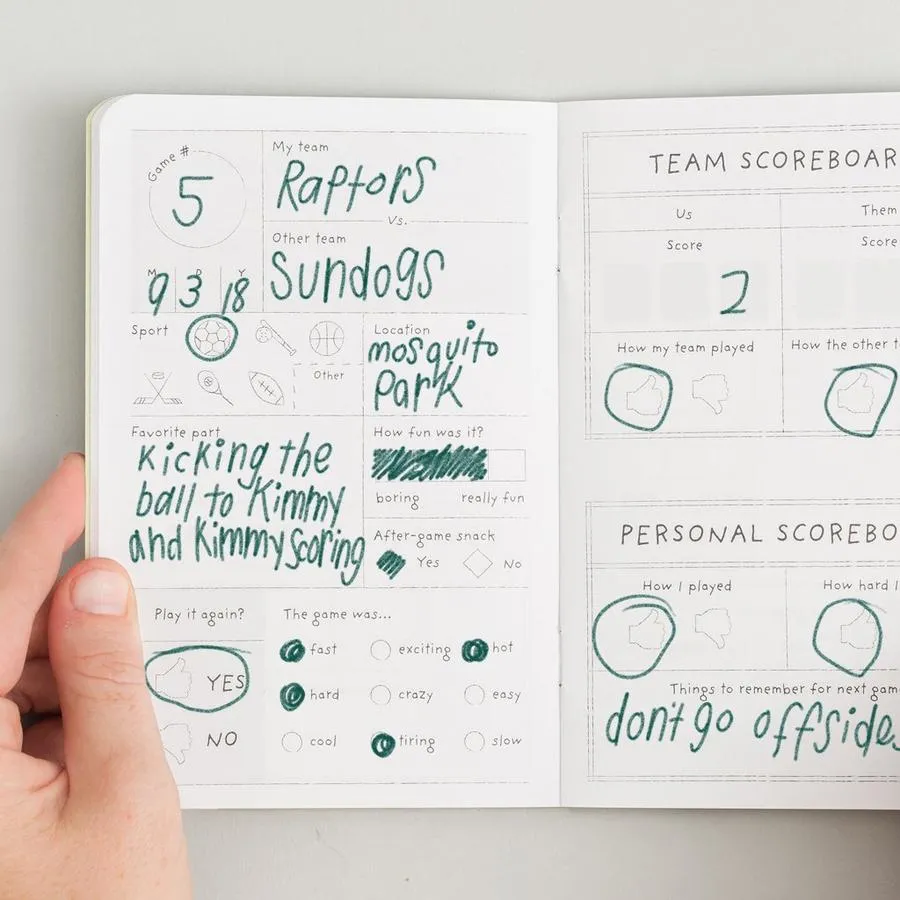 Game #
5
M D Y
9 3 18
My team
Raptors
Vs.
Other team
Sundogs
Sport
Other
Location
mosquito
Park
Favorite part
Kicking the
ball to Kimmy
and Kimmy Scoring
How fun was it?
boring really fun
After-game snack
Yes No
Play it again?
YES
NO
The game was...
fast exciting hot
hard crazy easy
cool tiring slow
TEAM SCOREBOAR
Us Them
Score Score
2
How my team played How the other t
PERSONAL SCOREBO
How I played How hard I
Things to remember for next gam
don't go offside